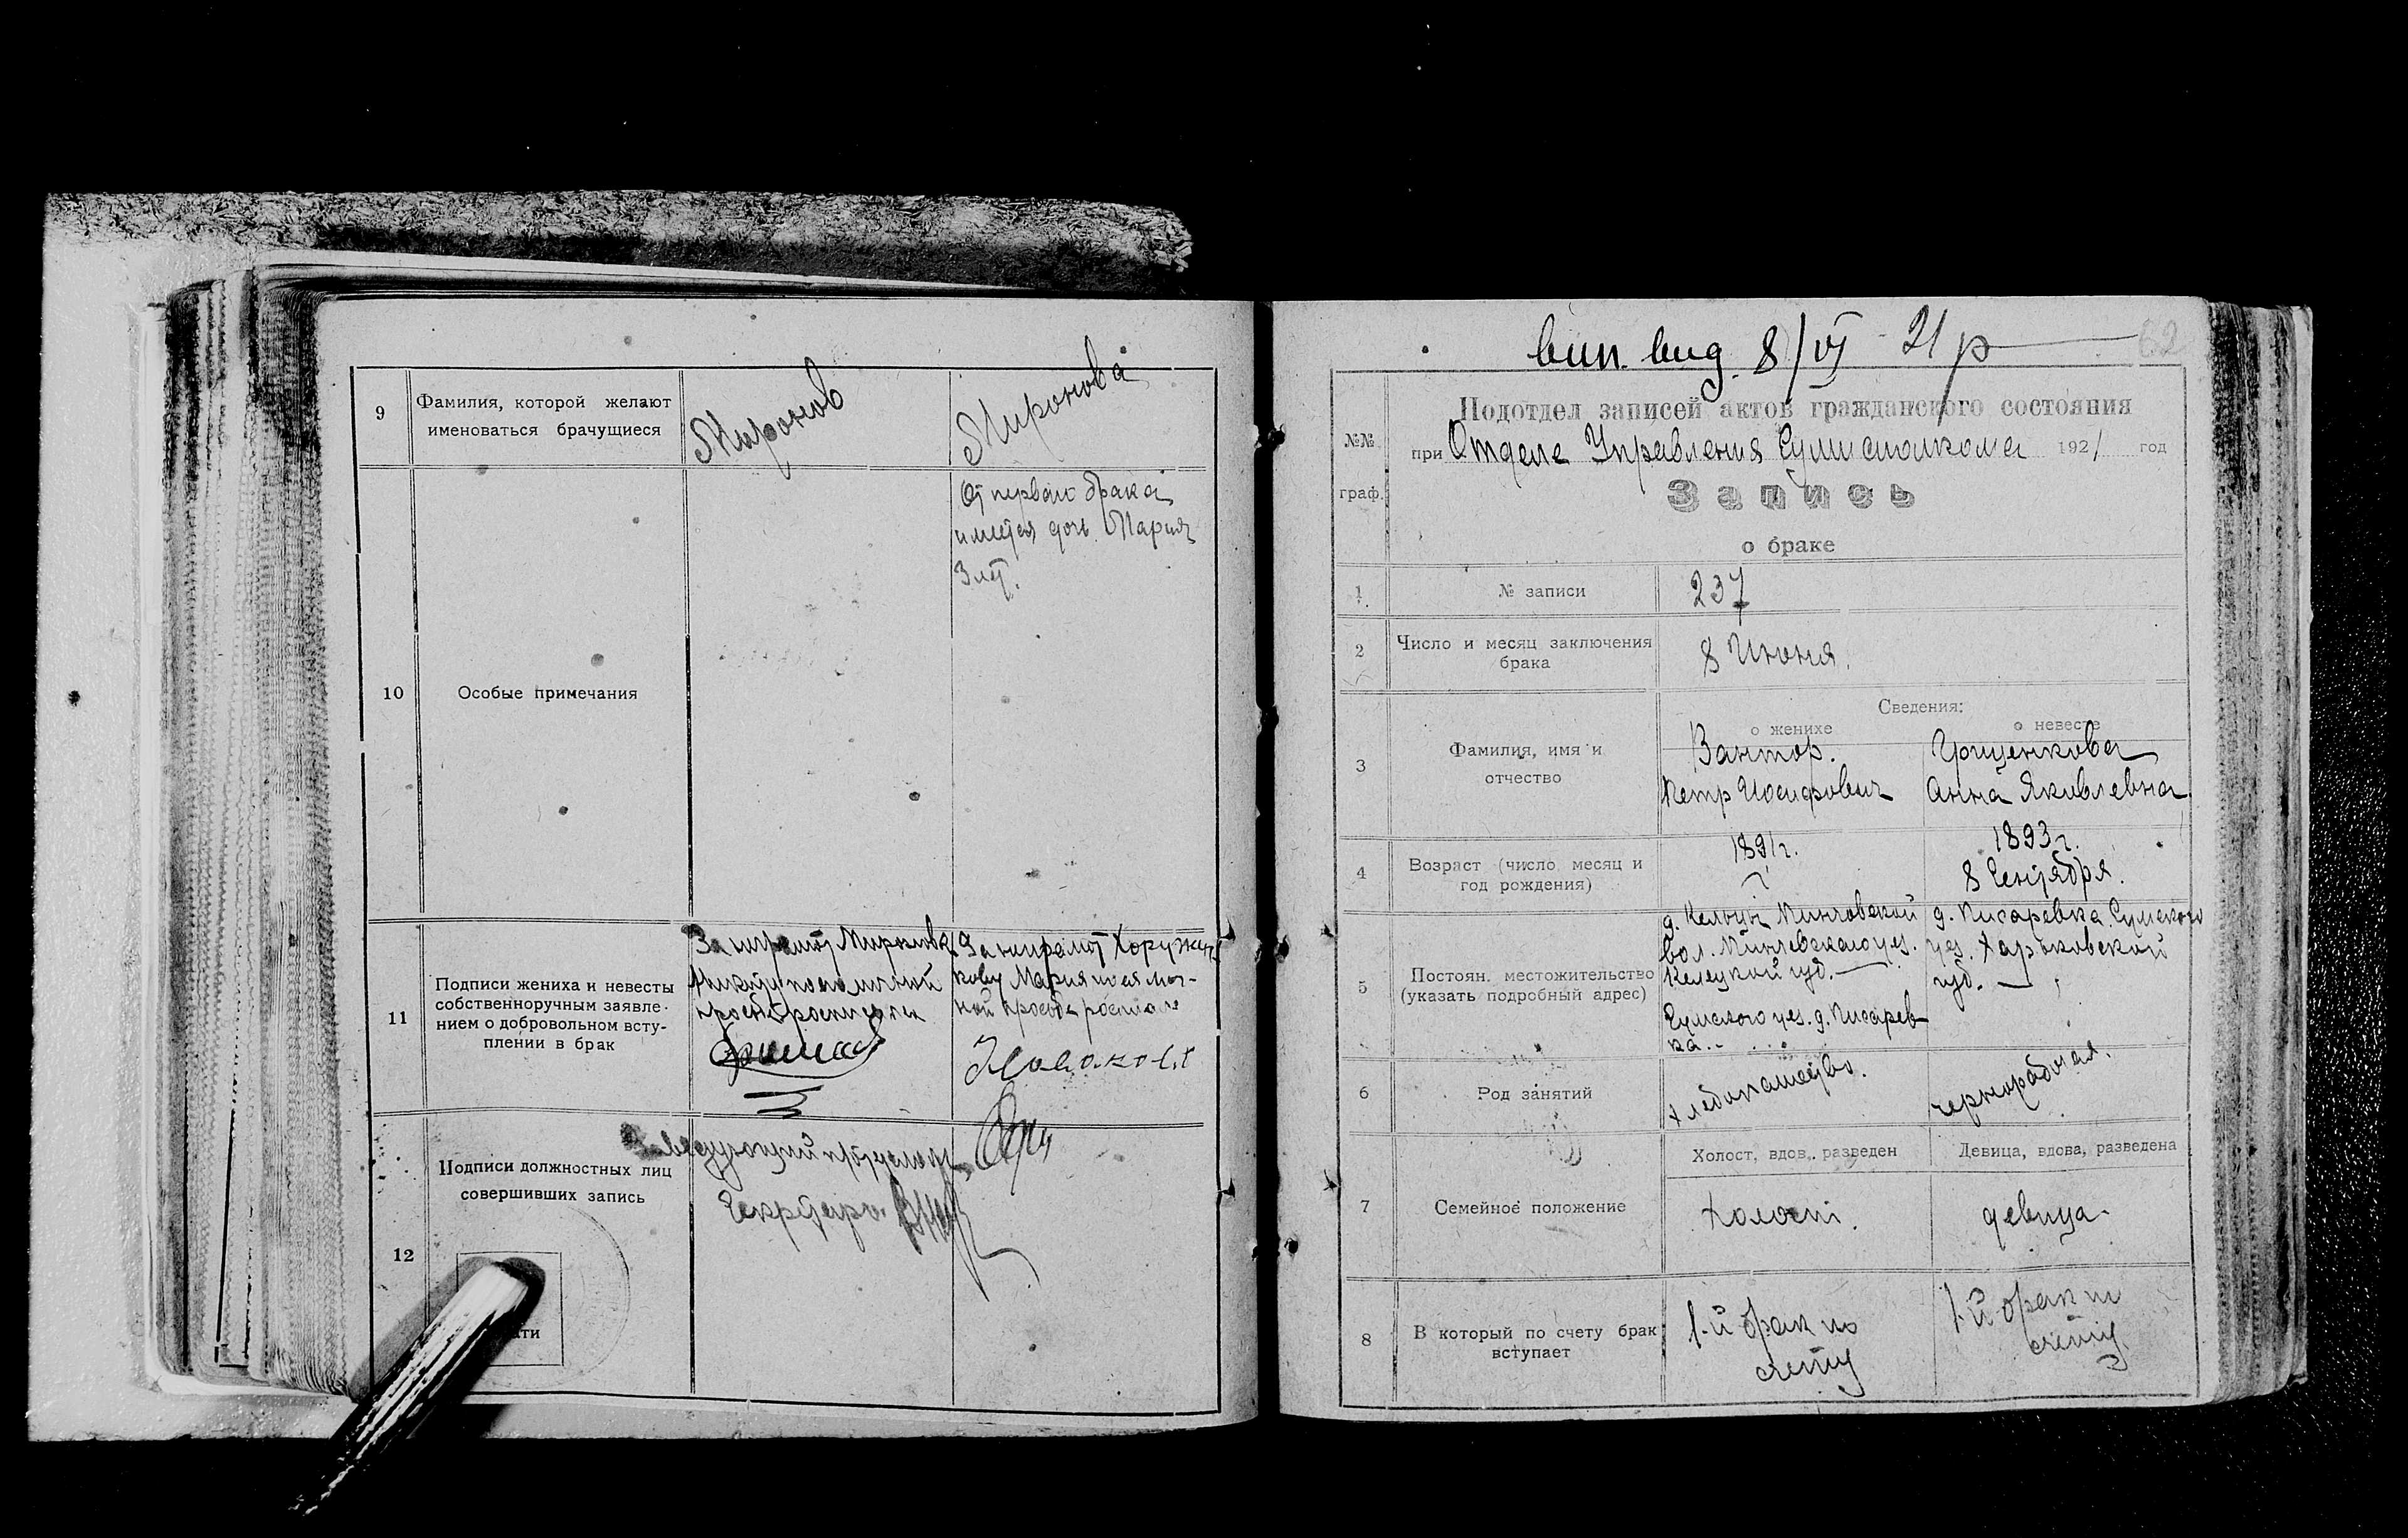 9
Фамилия, которой желают
именоваться брачущиеся
Миронов
Миронова
10
Особые примечания
От первого брака
имеется дочь Мария
3 лет.
11
Подписи жениха и невесты
собственноручным заявле-
нием о добровольном всту-
плении в брак
За неграмот
просьбе
За неграмот Хоружен-
кову Мария по ея лич-
ной просьбе росписал
12
Подписи должностных лиц
совершивших запись
Заведующий
Секретарь
вип. вид. 8/VI 21 р
62
№№
граф.
Подотдел записей актов гражданского состояния
при Отделе Управления Сумисполкома 1921 год
Запись
о браке
1
№ записи
237
2
Число и месяц заключения
брака
8 Июня.
3
Фамилия, имя и
отчество
Сведения:
о женихе
Вантор.
Петр Иосифович
о невесте
Грищенкова
Анна Яковлевна
4
Возраст (число месяц и
год рождения)
1891 г.
1893 г.
8 Сентября.
5
Постоян. местожительство
(указать подробный адрес)
д. Кельцы Пинчовской
вол. Пинчевского уез.
Келецкой губ.
Сумского уез. д. Писарев
ка.
д. Писаревка Сумского
уез. Харьковской
губ.
6
Род занятий
хлебопашество.
чернорабочая.
7
Семейное положение
Холост, вдов., разведен
Холост.
Девица, вдова, разведена
девица.
8
В который по счету брак
вступает
1-й брак по
счету
1-й брак по
счету